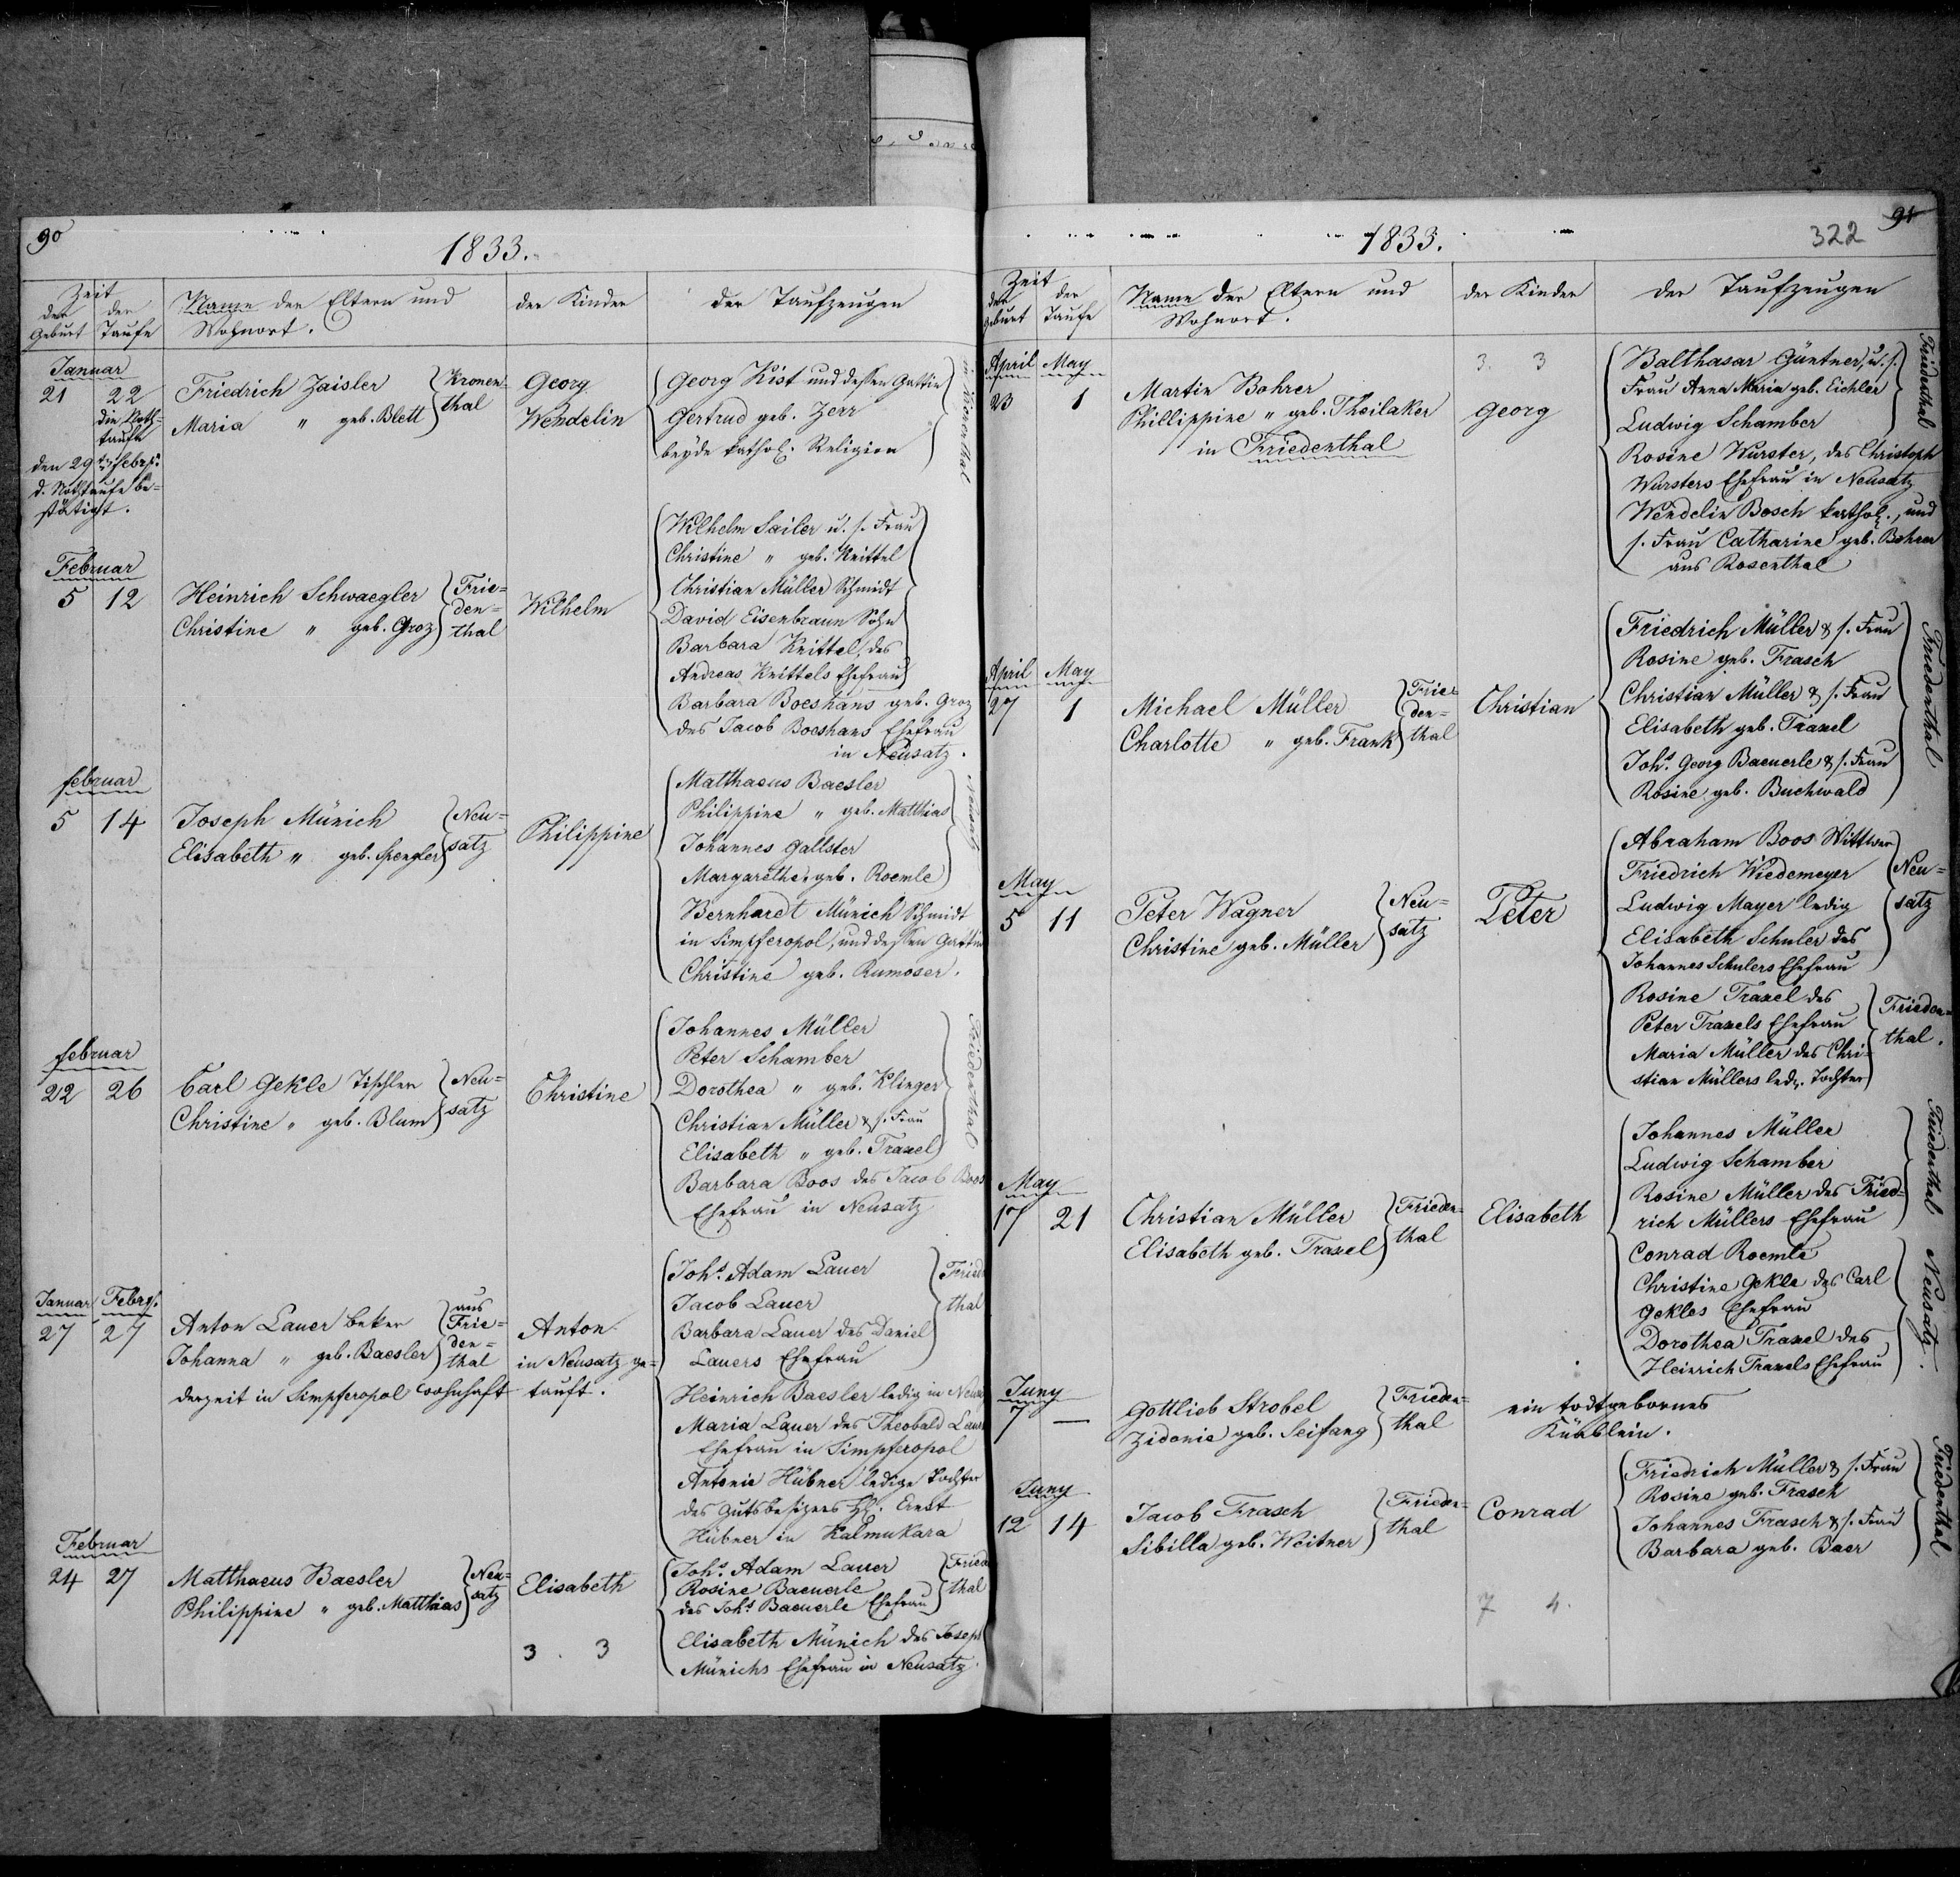 90
1833.
Zeit
der Geburt
der Taufe
Name der Eltern und
Wohnort.
der Kinder
der Taufzeugen
Januar
21 22
die Noth-
taufe
den 29ten Febr.
d. Nothtaufe be-
stätigt.
Friedrich Zaisler
Maria " geb. Blett
Kronen-
thal
Georg
Wendelin
Georg Kist und dessen Gattin
Gertrud geb. Zerr
beyde kathol. Religion
in Kronenthal
Februar
5 12
Heinrich Schwaegler
Christine " geb. Groz
Frie-
den-
thal
Wilhelm
Wilhelm Sailer u. s. Frau
Christine " geb. Knittel
Christian Müller Schmidt
David Eisenbraun Sohn
Barbara Knittel, des
Andreas Knittels Ehefrau
Barbara Boeshans geb. Groz
des Jacob Boeshans Ehefrau
in Neusatz.
februar
5 14
Joseph Münich
Elisabeth " geb. Spengler
Neu-
satz
Philippine
Matthaeus Baesler
Philippine " geb. Matthias
Johannes Gallster
Margarethe " geb. Roemle
Neusatz
Bernhardt Münich Schmidt
in Simpferopol, und dessen Gattin
Christine geb. Rumoser.
februar
22 26
Carl Gekle Tischler
Christine " geb. Blum
Neu-
satz
Christine
Johannes Müller
Peter Schamber
Dorothea " geb. Klinger
Christian Müller & s. Frau
Elisabeth " geb. Traxel
Friedenthal
Barbara Boos des Jacob Boos
Ehefrau in Neusatz
Januar Febr.
27 27
Anton Lauer beker
Johanna " geb. Baesler
aus
Frie-
den-
thal
derzeit in Simpferopol wohnhaft
Anton
in Neusatz ge-
tauft.
Johs. Adam Lauer
Jacob Lauer
Barbara Lauer des Daniel
Lauers Ehefrau
Fried
thal
Heinrich Baesler ledig in
Maria Lauer des Theobald
Ehefrau in Simpferopol
Antonie Hübner ledige Tochter
des Gutsbesizers H. Ernst
Hübner in Kalmukara
Februar
24 27
Matthaeus Baesler
Philippine " geb. Matthias
Neu-
satz
Elisabeth
Johs. Adam Lauer
Rosine Baeuerle
des Johs. Baeuerle Ehefrau
Fried
thal
Elisabeth Münich des Joseph
Münichs Ehefrau in Neusatz.
3 . 3
91
322
1833.
Zeit
der Geburt
der Taufe
Name der Eltern und
Wohnort.
der Kinder
der Taufzeugen
3. 3
April May
23 1
Martin Bohrer
Phillippine " geb. Theilaker
in Friedenthal
Georg
Balthasar Güntner, u. s.
Frau Anna Maria geb. Eichler
Ludwig Schamber
Friedenthal
Rosine Wurster, des Christoph
Wursters Ehefrau in Neusatz
Wendelin Bosch kathol., und
s. Frau Catharine geb. Bohrer
aus Rosenthal
April May
27 1
Michael Müller
Charlotte " geb. Frank
Frie-
den-
thal
Christian
Friedrich Müller & s. Frau
Rosine geb. Frasch
Christian Müller & s. Frau
Elisabeth geb. Traxel
Johs. Georg Baeuerle & s. Frau
Rosine geb. Buchwald
Friedenthal
May
5 11
Peter Wagner
Christine geb. Müller
Neu-
satz
Peter
Abraham Boos Wittwer
Friedrich Wiedemeyer
Ludwig Mayer ledig
Elisabeth Schuler des
Johannes Schulers Ehefrau
Neu-
satz
Rosine Traxel des
Peter Traxels Ehefrau
Maria Müller des Chri-
stian Müllers led. Tochter
Frieden-
thal.
May
17 21
Christian Müller
Elisabeth geb. Traxel
Frieden-
thal
Elisabeth
Johannes Müller
Ludwig Schamber
Rosine Müller des Fried-
rich Müllers Ehefrau
Friedenthal
Conrad Roemle
Christine Gekle des Carl
Gekles Ehefrau
Dorothea Traxel des
Heinrich Traxels Ehefrau
Neusatz.
Juny
7 —
Gottlieb Strobel
Zidonie geb. Seifang
Frieden-
thal
ein todtgebornes
Knäblein.
Juny
12 14
Jacob Frasch
Sibilla geb. Weitner
Frieden-
thal
Conrad
Friedrich Müller & s. Frau
Rosine geb. Frasch
Johannes Frasch & s. Frau
Barbara geb. Baer
Friedenthal
7 4.